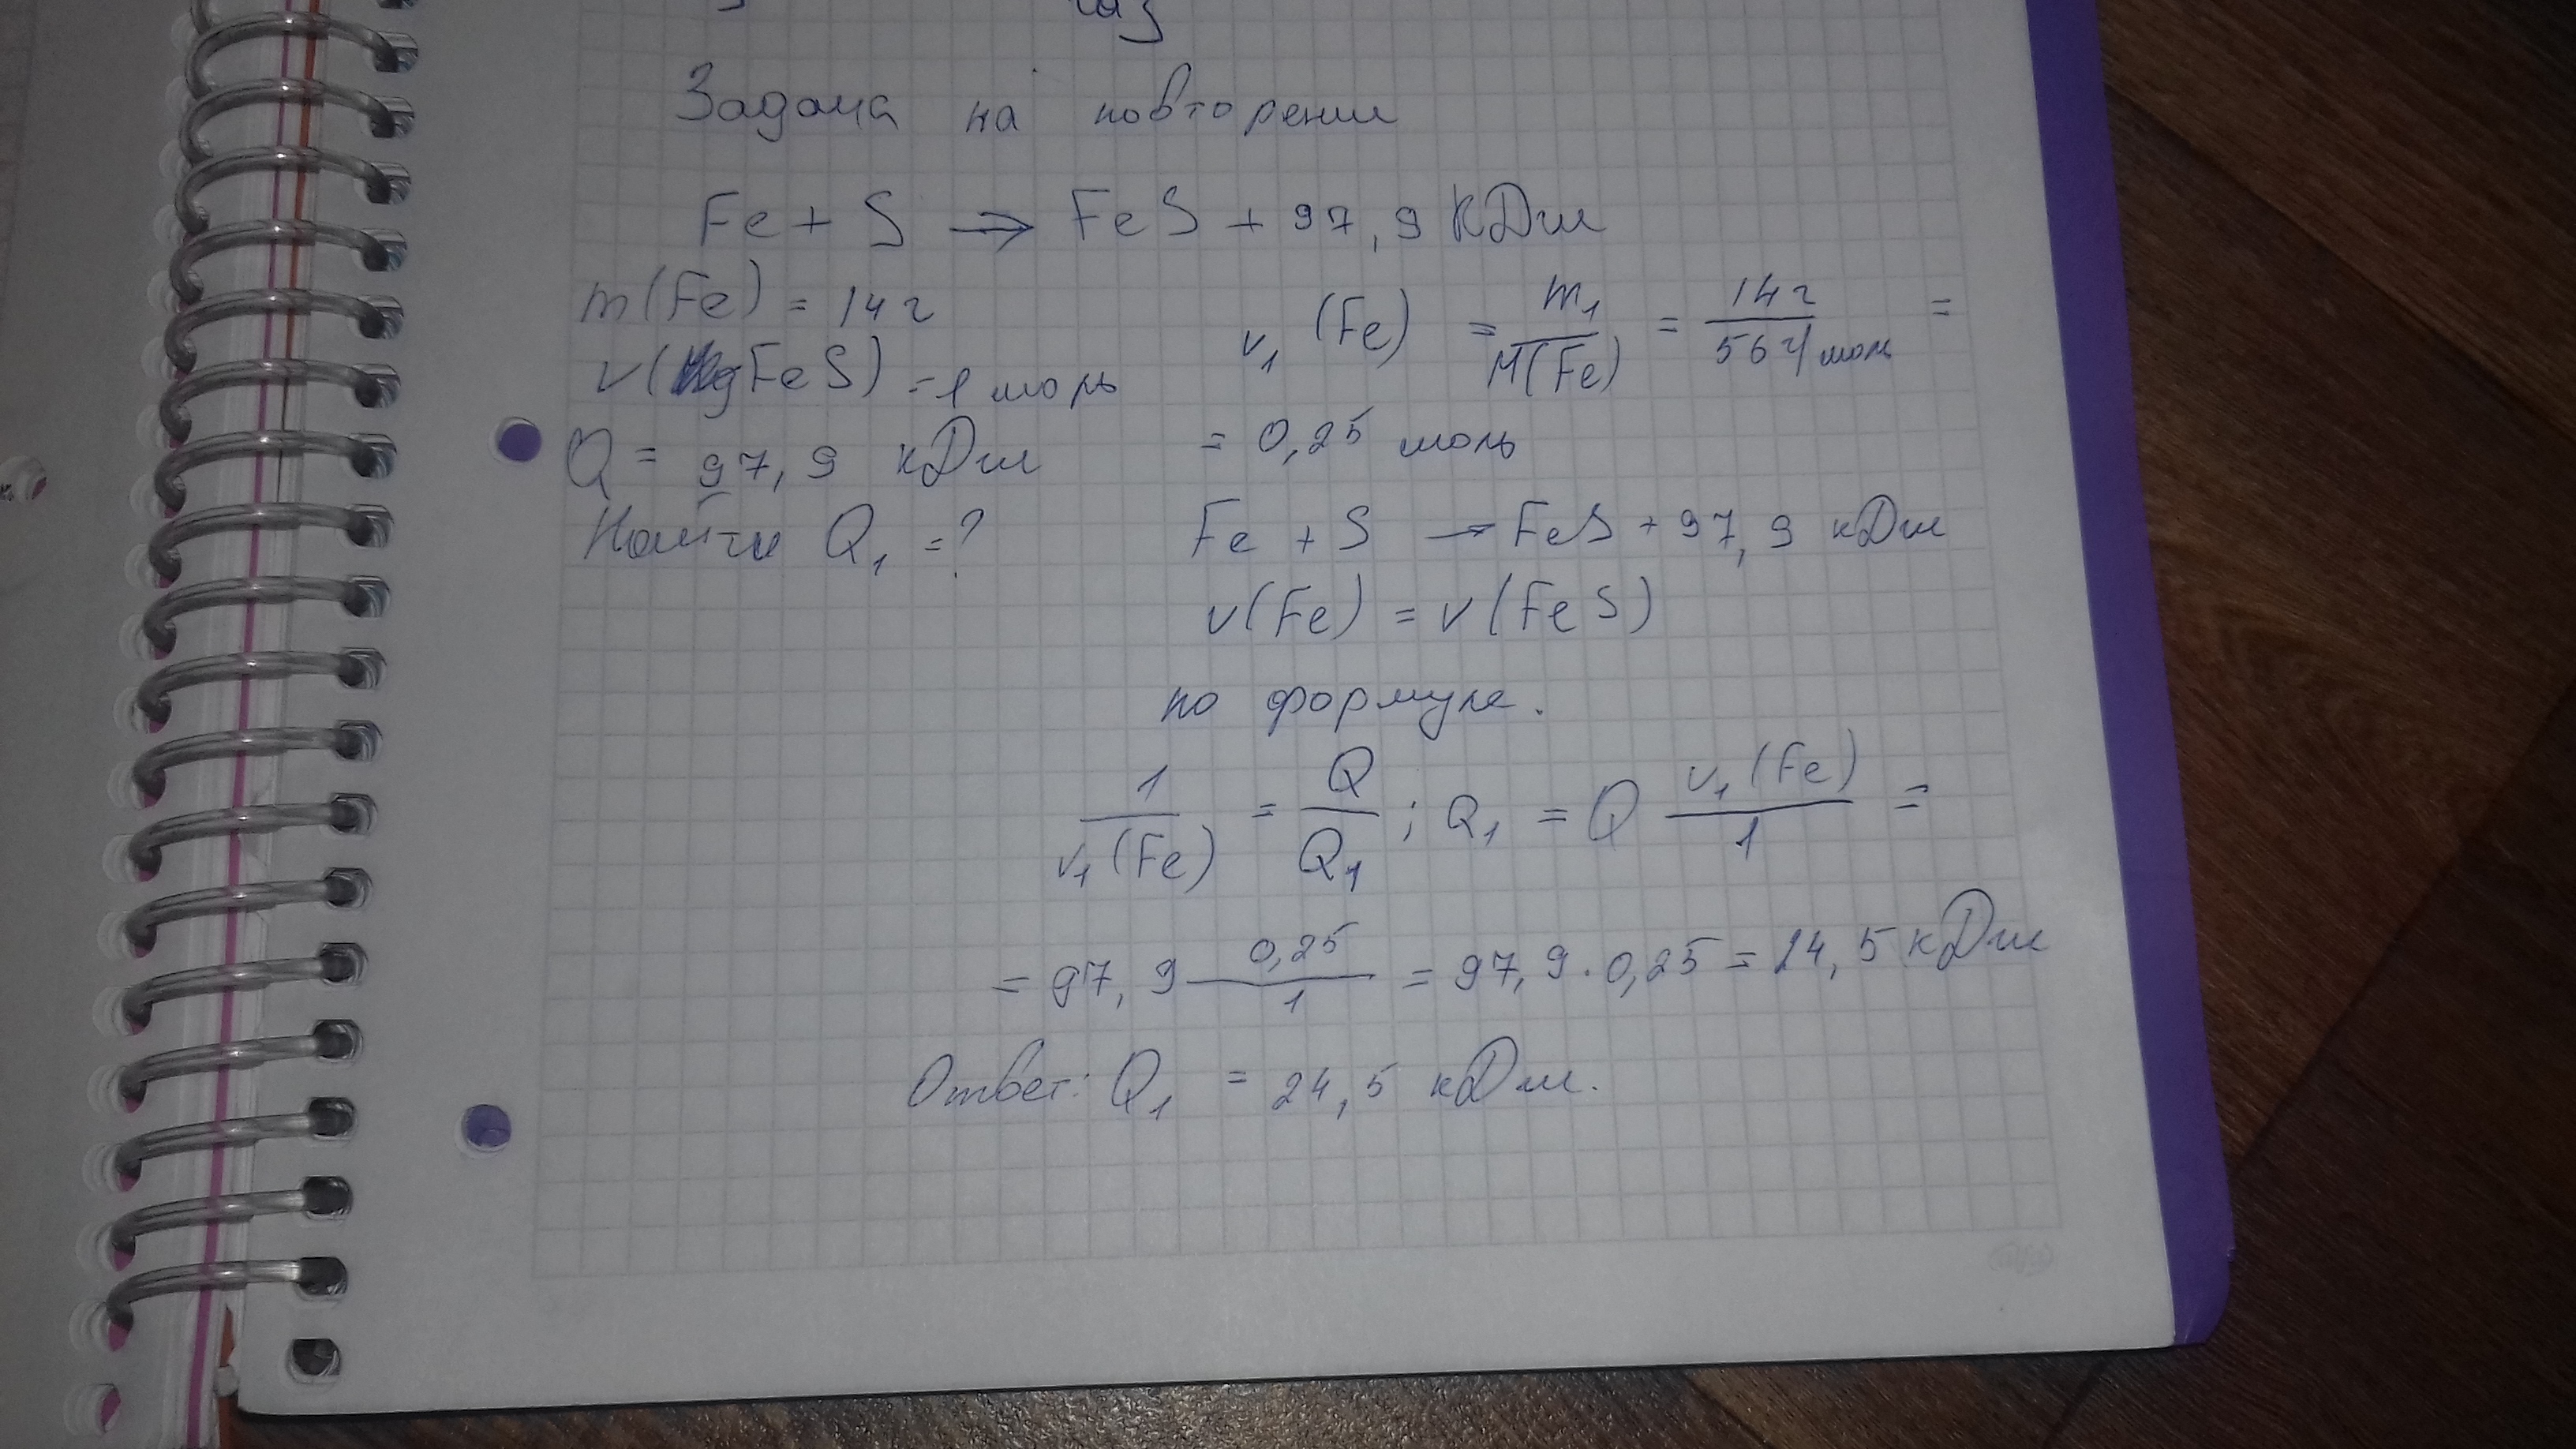 газ
Задача на повторении
Fe + S → FeS + 97,9 кДж
m(Fe) = 14 г
ν(FeS) = 1 моль
Q = 97,9 кДж
Найти Q₁ = ?
ν₁(Fe) = m₁/M(Fe) = 14 г/56 г/моль =
= 0,25 моль
Fe + S → FeS + 97,9 кДж
ν(Fe) = ν(FeS)
по формуле.
1/ν₁(Fe) = Q/Q₁; Q₁ = Q ν₁(Fe)/1 =
= 97,9 0,25/1 = 97,9 · 0,25 = 24,5 кДж
Ответ: Q₁ = 24,5 кДж.